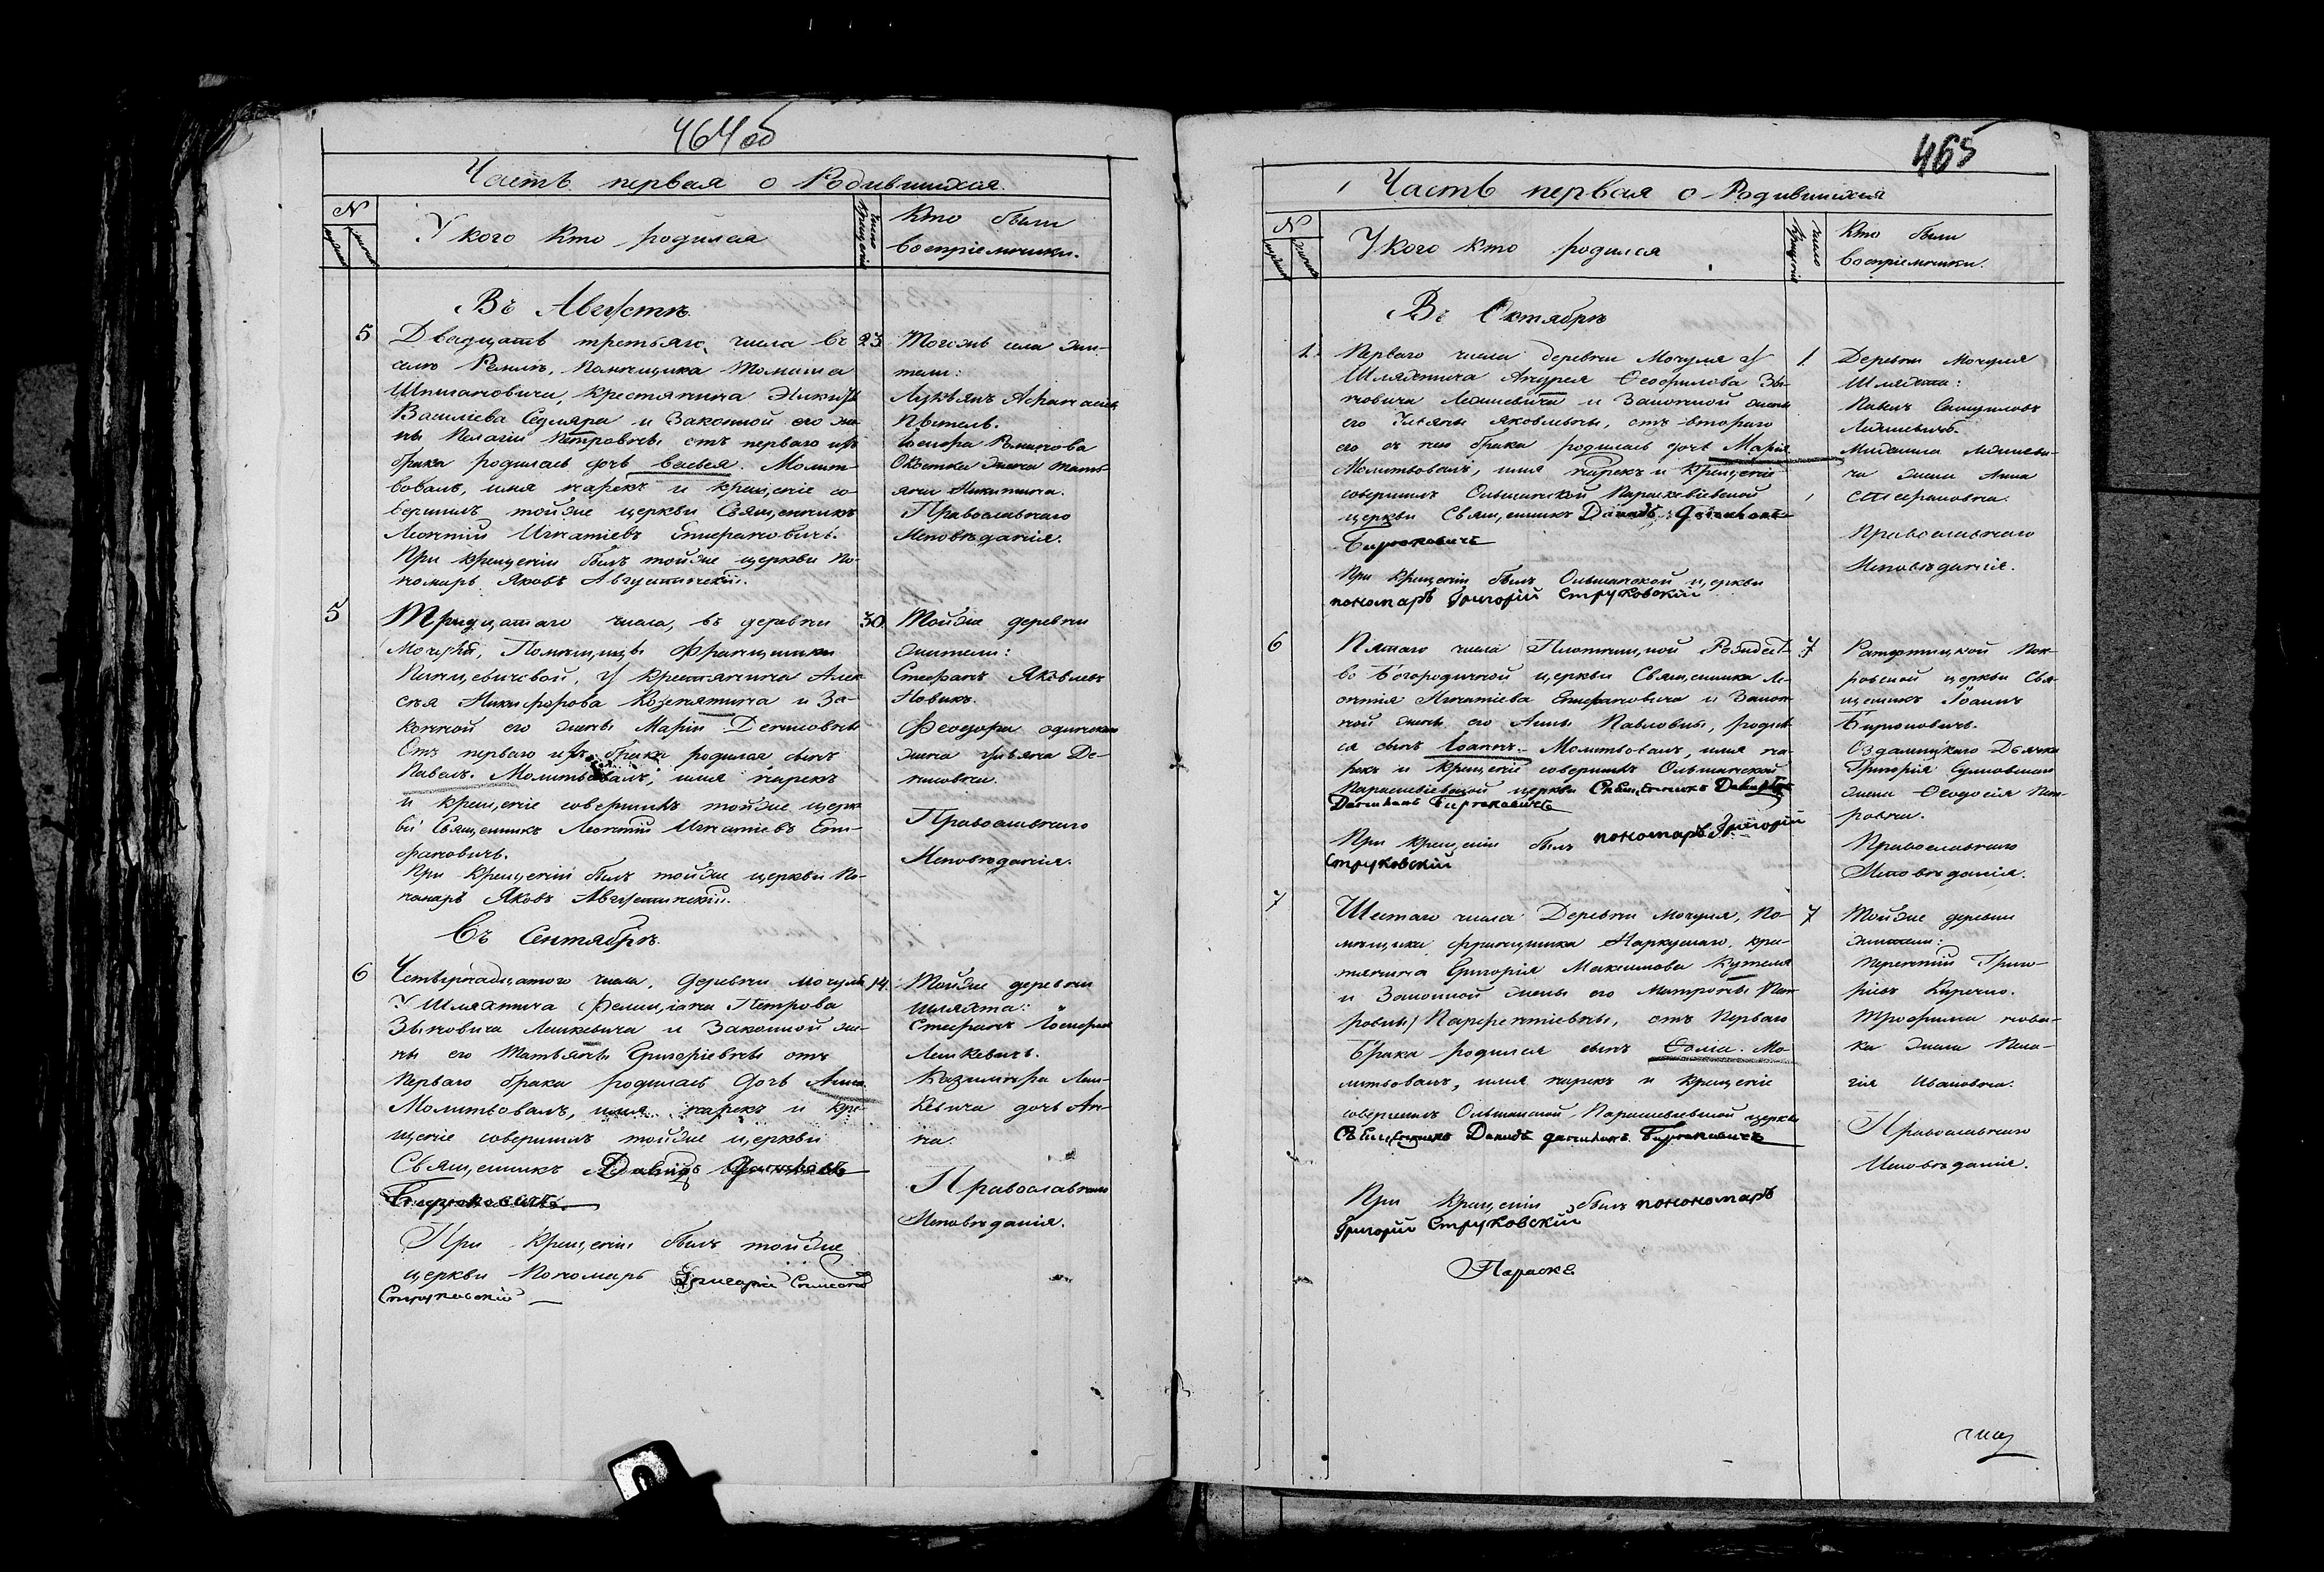 464 об
Часть первая о Родившихся.
№
У кого кто родился
число крещенія
Кто были
воспріемники.
Въ Августѣ.
5 Двадцать третьяго числа въ 23
селѣ Помѣщика Томаша
крестянина
Василіева Седляра и Законной его же-
ны Пелагіи Петровны отъ перваго ихъ
брака родилась дочь Молит-
вовалъ, имя нарекъ и крещеніе со-
вершилъ тойже церкви Священникъ
Леонтій Игнатіевъ Епифановичъ.
При крещеніи былъ тойже церкви По-
номарь Яковъ Августинскій.
Тогожъ села жи-
тели:
Лукьянъ
Романова
жена Тать-
яна Никитина.
Православнаго
Исповѣданія.
5 Тридцатаго числа, въ деревни 30
Мочуля, Помѣщицы Францишки
у крестянина Алек
сѣя Никифорова и За-
конной его жены Маріи Денисовны
Отъ перваго ихъ брака родился сынъ
Павелъ. Молитвовалъ, имя нарекъ
и крещеніе совершилъ тойже церк
ви Священникъ Леонтій Игнатіевъ Епи-
фановичъ.
При Крещеніи былъ тойже церкви По-
номарь Яковъ Августинскій.
Тойже деревни
жители:
Стефанъ Яковлевъ
Новикъ.
Феодора
жена Ульяна Де-
нисовна.
Православнаго
Исповѣданія.
Въ Сентябрѣ.
6 Четвертнадцатого числа, деревни Мочуля 14.
У Шляхтича Петрова
Зѣновича Лешкевича и Законной же-
ны его Татьяны Григоріевны отъ
перваго брака родилась дочь Анна.
Молитвовалъ, имя нарекъ и кре-
щеніе совершилъ тойже церкви
Священникъ Давидъ
Бирюковичъ.
При крещеніи былъ тойже
церкви Пономарь Григорій
Струковскій
Тойже деревни
шляхта:
Стефанъ Іосифовъ
Лешкевичъ.
Казимира Леш-
кевича дочь Ан-
на.
Православнаго
Исповѣданія.
465
Часть первая о Родившихся
№
У кого кто родился
число крещенія
Кто были
воспріемники.
Въ Октябрѣ
1. Перваго числа деревни Мочуля у 1.
Шляхтича Андрея Ѳеофилова Зѣ-
новича Лешкевича и Законной жены
его Ульяны Яковлевны, отъ втораго
его съ нею брака родилась дочь Марія
Молитвовалъ, имя нарекъ и крещеніе
совершилъ Ольшанской Параскевіевской
церкви Священникъ Давидъ
Бирюковичъ
При крещеніи былъ Ольшанской церкви
пономарь Григорій Струковскій
Деревни Мочуля
Шляхта:
Павелъ
Лешкевичъ.
Михаила Лешкеви-
ча жена Анна
Стефановна.
Православнаго
Исповѣданія.
6 Пятаго числа Плотницкой Рождест- 7
во Богородичной церкви Священника Ле-
онтія Игнатіева Епифановича и Закон-
ной жены его Анны Павловны, родил-
ся сынъ Іоаннъ. Молитвовалъ, имя на-
рекъ и крещеніе совершилъ Ольшанской
Параскевіевской церкви Священникъ Давидъ
Бирюковичъ
При крещеніи былъ пономарь Григорій
Струковскій
Пок-
ровской церкви Свя-
щенникъ Іоаннъ
Бирюковичъ.
Дьячка
Григорія
жена Ѳеодосія Пет-
ровна.
Православнаго
Исповѣданія.
7 Шестаго числа Деревни Мочуля, По- 7
мѣщика Францишка крес-
тянина Григорія Максимова
и Законной жены его Матроны
Парфентіевны, отъ перваго
Брака родился сынъ Ѳома. Мо-
литвовалъ, имя нарекъ и крещеніе
совершилъ Ольшанской Параскевіевской церкви
Священникъ Давидъ Бирюковичъ
При крещеніи былъ пономарь
Григорій Струковскій
Параске
Тойже деревни
жители:
Григо-
рьевъ
Трофима Нови-
ка жена Пела-
гія Ивановна.
Православнаго
Исповѣданія.